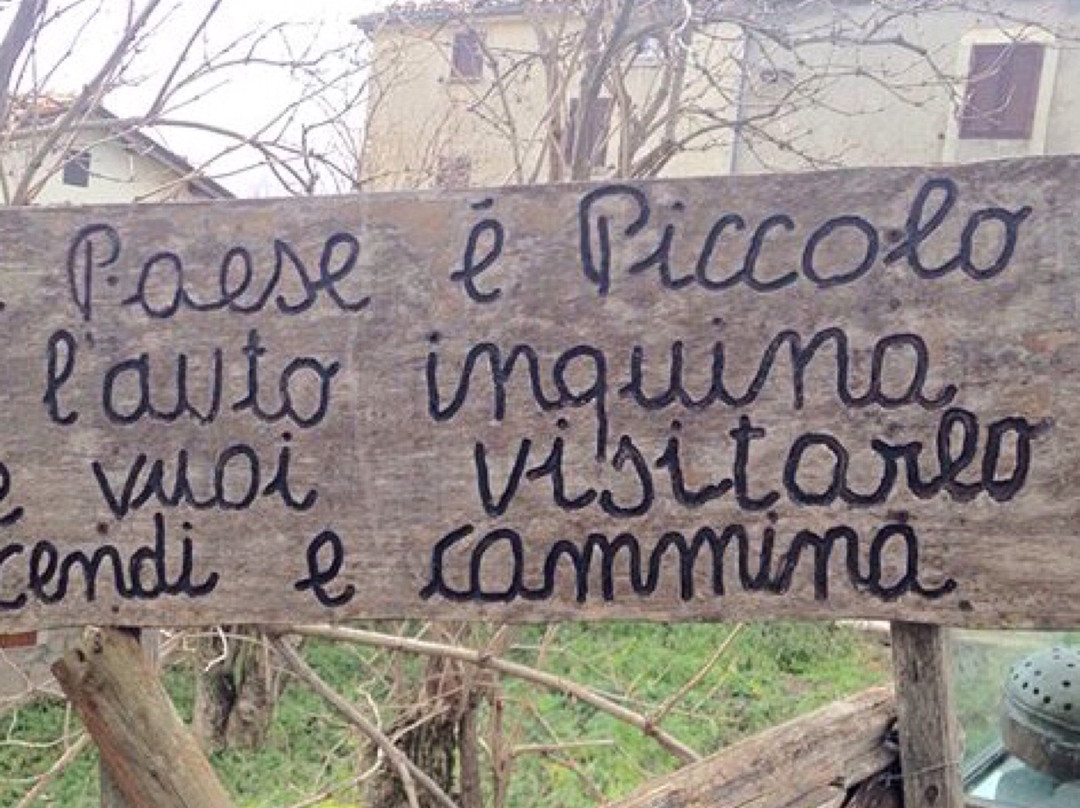 Paese é Piccolo
l'auto inquina
vuoi visitarlo
cendi e cammina